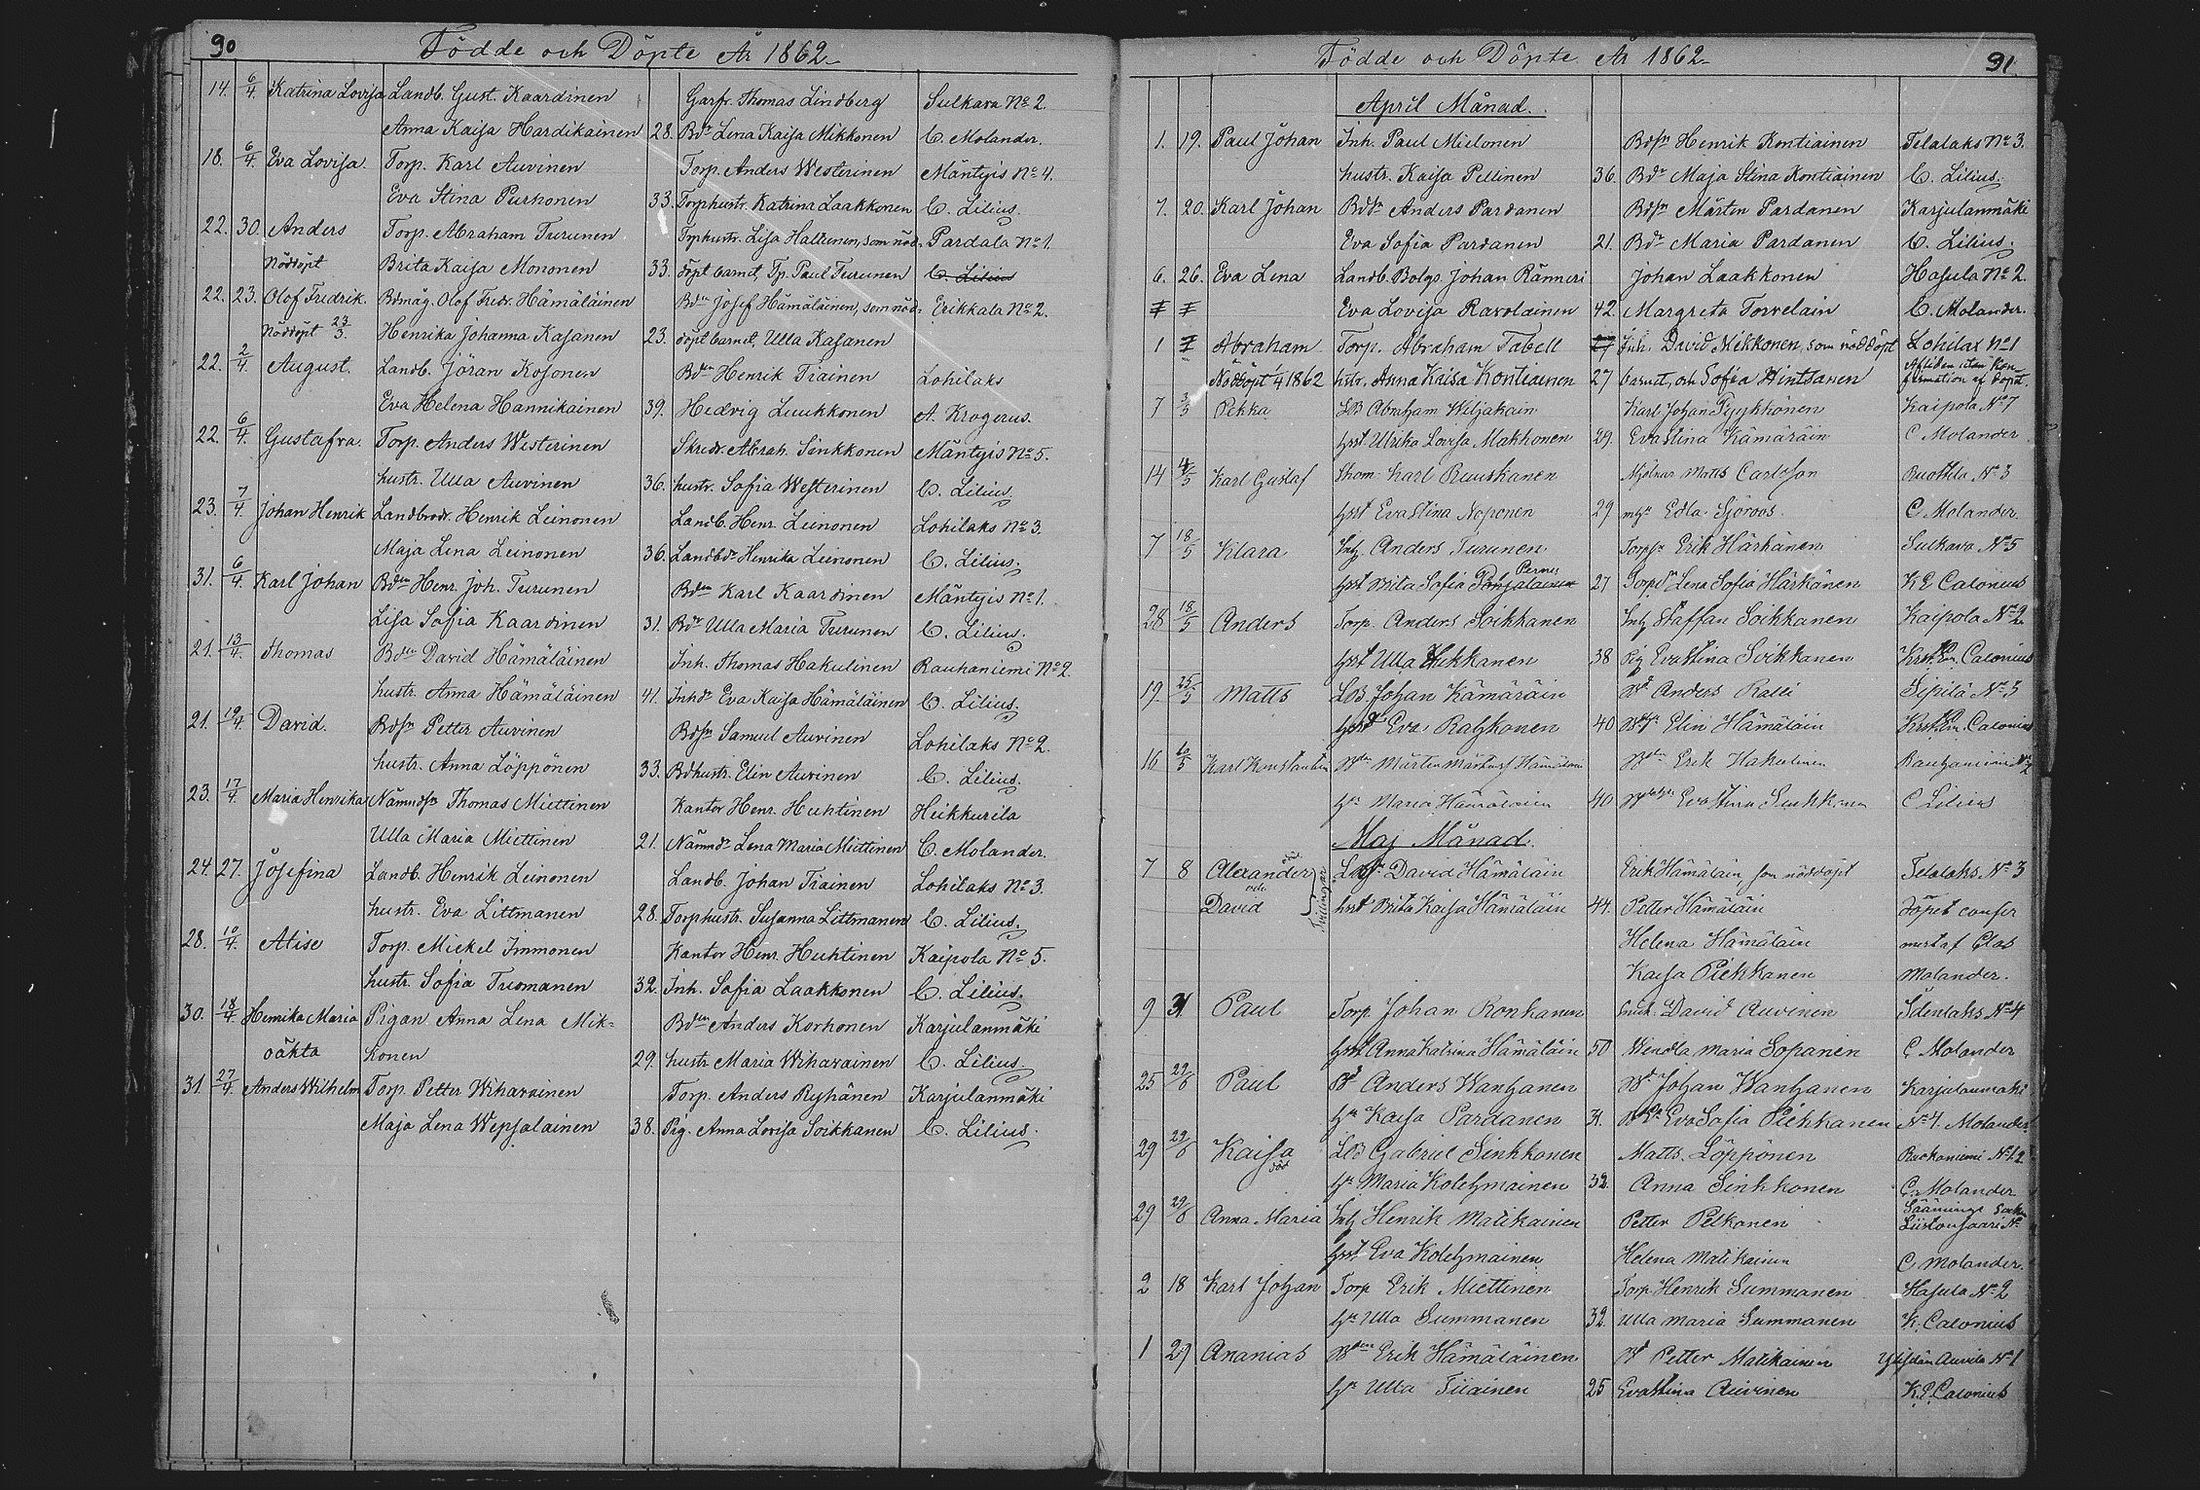 90 Födde och Döpte År 1862.
14. 6/4. Katrina Lovisa Landb. Gust. Kaardinen Garfr. Thomas Lindberg Sulkava No 2.
Anna Kaisa Hardikainen 28. Bdr Lena Kaisa Mikkonen C. Molander.
18. 6/4. Eva Lovisa. Torp. Karl Auvinen Torp. Anders Westerinen Mäntyis No 4.
Eva Stina Purhonen 33. Torphustr. Katrina Laakkonen C. Lilius.
22. 30. Anders Torp. Abraham Turunen Trphustr. Lisa Haltunen, som nöd- Pardala No 1.
Nöddöpt Brita Kaisa Mononen 33. döpt barnet, Tp. Paul Turunen C. Lilius
22. 23. Olof Fredrik. Bdmåg. Olof Fredr. Hämäläinen Bdn Josef Hämäläinen, som nöd- Erikkala No 2.
Nöddöpt 23/3. Henrika Johanna Kasanen 23. döpt barnet, Ulla Kasanen
22. 2/4 August. Landb. Jöran Kosonen Bdn Henrik Tiainen Lohilaks
Eva Helena Hannikainen 39. Hedvig Luukkonen A. Krogerus.
22. 6/4. Gustafva. Torp. Anders Westerinen Skredr. Abrah. Sinkkonen Mäntyis No 5.
hustr. Ulla Auvinen 36. hustr. Sofia Westerinen C. Lilius.
23. 7/4 Johan Henrik Landbrodr. Henrik Leinonen Landb. Henr. Leinonen Lohilaks No 3.
Maja Lena Leinonen 36. Landbdr Henrika Leinonen C. Lilius.
31. 6/4. Karl Johan Bdn Henr. Joh. Turunen Bdn Karl Kaardinen Mäntyis No 1.
Lisa Sofia Kaardinen 31. Bdr Ulla Maria Turunen C. Lilius.
21. 13/4. Thomas Bdn David Hämäläinen Inh. Thomas Hakulinen Rauhaniemi No 2.
hustr. Anna Hämäläinen 41. Inhdr Eva Kaisa Hämäläinen C. Lilius.
21. 19/4. David. Bdsn Petter Auvinen Bdsn Samuel Auvinen Lohilaks No 2.
hustr. Anna Löppönen 33. Bdhustr. Elin Auvinen C. Lilius.
23. 17/4. Maria Henrika Nämndsn Thomas Miettinen Kantor Henr. Huhtinen Heikkurila
Ulla Maria Miettinen 21. Nämndr Lena Maria Miettinen C. Molander.
24. 27. Josefina Landb. Henrik Leinonen Landb. Johan Tiainen Lohilaks No 3.
hustr. Eva Littmanen 28. Torphustr. Susanna Littmanen C. Lilius.
28. 10/4. Atise Torp. Mickel Immonen Kantor Henr. Huhtinen Kaipola No 5.
hustr. Sofia Tuomanen 32. Inh. Sofia Laakkonen C. Lilius.
30. 18/4. Henrika Maria Pigan Anna Lena Mik- Bdn Anders Korhonen Karjulanmäki
oäkta konen 29. hustr. Maria Wihavainen C. Lilius.
31. 27/4. Anders Wilhelm Torp. Petter Wihavainen Torp. Anders Ryhänen Karjulanmäki
Maja Lena Wepsalainen 38. Pig. Anna Lovisa Soikkanen C. Lilius.
Födde och Döpte År 1862. 91.
April Månad.
1. 19. Paul Johan Inh. Paul Mielonen Bdsn Henrik Kontiainen Telalaks No 3.
hustr. Kaisa Pellinen 36. Bdr Maja Stina Kontiainen C. Lilius.
7. 20. Karl Johan Bdsn Anders Pardanen Bdsn Mårten Pardanen Karjulanmäki
Eva Sofia Pardanen 21. Bdr Maria Pardanen C. Lilius.
6. 26. Eva Lena Landb. Bolgs. Johan Ränneri Johan Laakkonen Hasula No 2.
Eva Lovisa Ravolainen 42. Margreta Torvelain C. Molander.
1 Abraham Torp. Abraham Tabell Inh. David Mikkonen, som nöddöpt Lohilax No 1
Nöddöpt 1/4 1862 hstr. Anna Kaisa Kontiainen 27 barnet, och Sofia Hintsanen Afliden utan kon-
firmation af dopet
7 3/5 Pekka LB Abraham Wiljakain Karl Johan Pyykkönen Kaipola No 7
hst Ulrika Lovisa Makkonen 29. Eva Stina Kämäräin C Molander
14 4/5 Karl Gustaf Skom. Karl Ruuskanen Mjölnar Matts Carlsson Ruokkla No 3
hst Eva Stina Noponen 29 Edla Sjöroos C. Molander.
7 18/5 Klara Inh. Anders Turunen Torpsn Erik Härkänen Sulkava No 5
hst Brita Sofia 27 Torpdr Lena Sofia Härkänen K E Calonius
28 18/5 Anders Torp. Anders Soikkanen Inh Staffan Soikkanen Kaipola No 2
hst Ulla Hukkanen 38 Pig Eva Stina Soikkanen Calonius
19. 25/5 Matts LB Johan Kämäräin Bd Anders Ralli Sipilä No 3
hst Eva Ratkonen 40 Elin Hämäläin Calonius
16 6/5 Karl Konstantin Bdn Mårten Hämäläinen Bdn Erik Hakulinen Rauhaniemi No 2
hu Maria Hämäläinen 40 Eva Stina Sinkkonen C Lilius
Maj Månad.
7 8 Alexander död David Hämäläin Erik Hämäläin, som nöddöpt Telalaks No 3
och
David Tvillingar hust Brita Kaisa Hämäläin 44. Petter Hämäläin döpet confir
Helena Hämäläin merat af Clas
Kaisa Piekkanen Molander.
9 31 Paul Torp. Johan Ronkanen David Auvinen Idenlaks No 4
hst Anna Katrina Hämäläin 50 Wendla Maria Sopanen C Molander
25 29/6 Paul Bd Anders Wanhanen Bd Johan Wanhanen Karjulanmäki
hu Kaisa Pardanen 31. Eva Sofia Piekkanen No 4. Molander
29 29/6 Kaisa LB Gabriel Sinkkonen Matts Löppönen Rauhaniemi No 12
död hu Maria Kolehmainen 32. Anna Sinkkonen C. Molander
29 29/6 Anna Maria Inh Henrik Malikainen Petter Pelkonen Sääminge Sockn
Liistonsaari No
hst Eva Kolehmainen Helena Malikainen C. Molander.
2 18 Karl Johan Torp Erik Miettinen Torp Henrik Summanen Hasula No 2
hu Ulla Summanen 32. Ulla Maria Summanen K. Calonius
1 29 Ananias Bdn Erik Hämäläinen Bd Petter Malikainen Auvila No 1
hu Ulla Tiainen 25 Eva Stina Auvinen K. E. Calonius